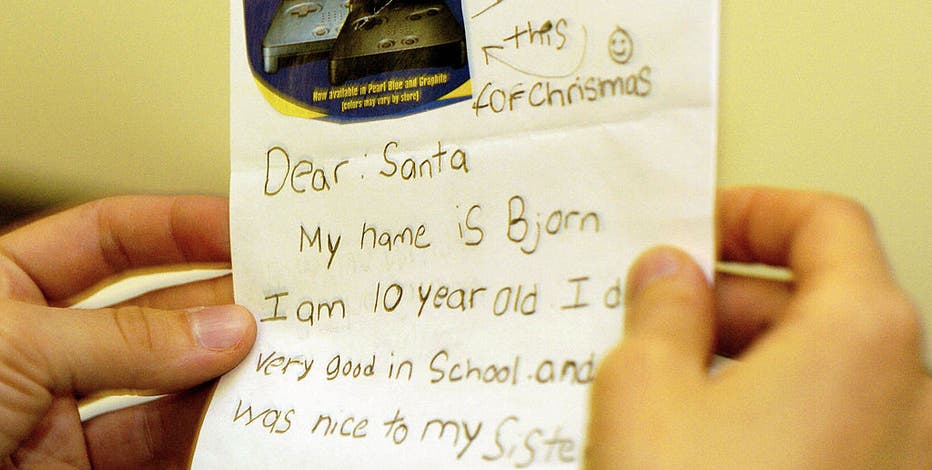 this
for chrismas
Now available in Pearl Blue and Graphite
(colors may vary by store)
Dear: Santa
My name is Bjorn
I am 10 year old I d
very good in School. and
was nice to my Siste